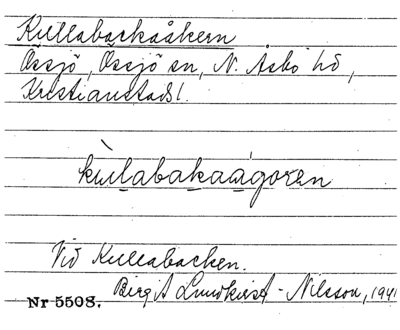 Kullabackaåkern
Össjö, Össjö sn, N. Åsbo hd,
Kristianstads l.
kùlabakaågoren
Vid Kullabacken.
Birgit Lundkvist-Nilsson, 1941
Nr 5508.